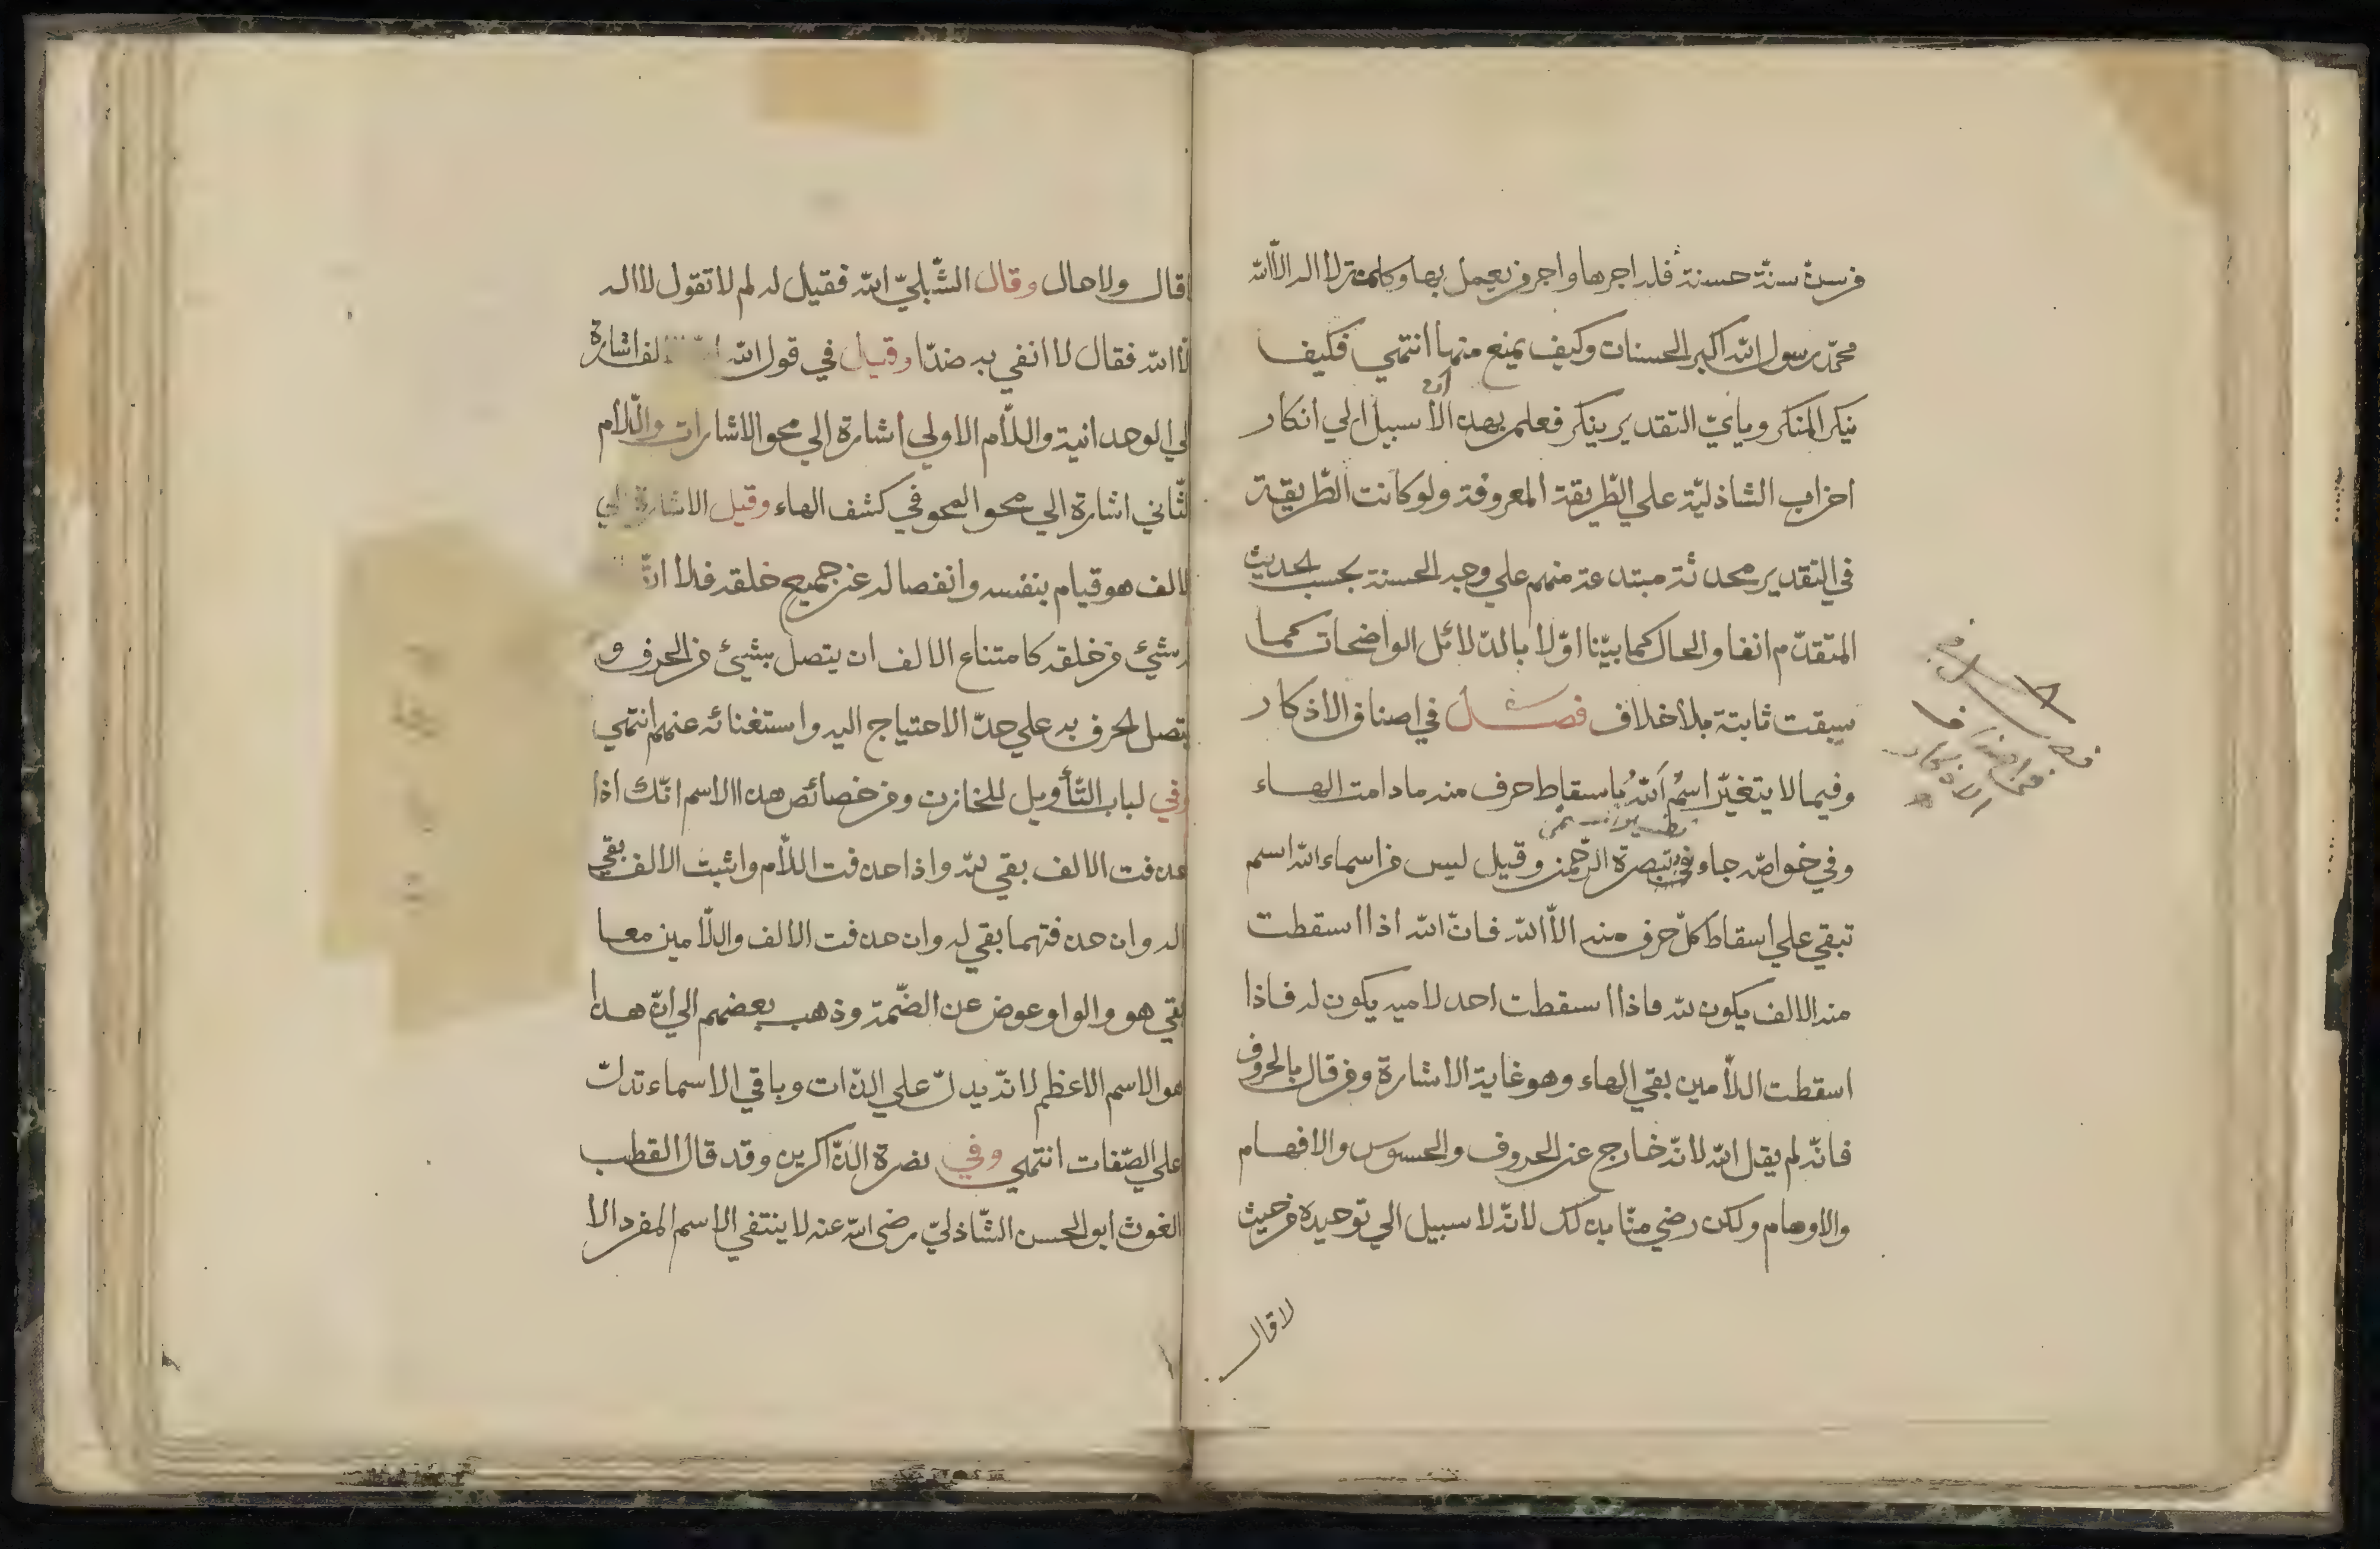 من سنّ سنّة حسنة فله اجرها واجر من يعمل بها وكلمة لا اله الا الله
محمّد رسول الله اكبر الحسنات وكيف يمنع منها انتهي فكيف
ينكر المنكر وبايّ التقدير ينكر فعلم بهذا ان لا سبيل الي انكار
احزاب الشاذليّة علي الطّريقة المعروفة ولو كانت الطّريقة
في التقدير محدثة مبتدعة منهم علي وجه الحسنة بحسب الحديث
المتقدّم انفا والحال كما بيّنا اوّلا بالدّلائل الواضحات كما
سبقت ثابتة بلا خلاف فصل في اصناف الاذكار
وفيما لا يتغيّر اسمُ اَللهُ باسقاط حرف منه ما دامت الهاء
وفي خواصّه جاء في تبصرة الرّحمن وقيل ليس من اسماء الله اسم
تبقي علي اسقاط كلّ حرف منه الاّ الله فانّ الله اذا اسقطت
منه الالف يكون لله فاذا اسقطت احد لاميه يكون له فاذا
اسقطت اللاّمين بقي الهاء وهو غاية الاشارة ومن قال بالحروف
فانّه لم يقل الله لانّه خارج عن الحروف والحسوس والافهام
والاوهام ولكن رضي منّا بذلك لانّه لا سبيل الي توحيده من حيث
لا قال
لا قال ولا حال وقال الشّبليّ الله فقيل له لم لا تقول لا اله
الّا الله فقال لا انفي به ضدّا وقيل في قول الله الف اشارة
الي الوحدانية واللاّم الاولي اشارة الي محو الاشارات واللّام
الثّاني اشارة الي محو المحو في كشف الهاء وقيل الاشارة في
الالف هو قيام بنفسه وانفصاله عن جميع خلقه فلا
بشيئ من خلقه كامتناع الالف ان يتصل بشيئ من الحرف و
يتصل الحرف به علي حدّ الاحتياج اليه واستغنائه عنهم انتهي
وفي لباب التّأويل للخازن ومن خصائص هذا الاسم انّك اذا
حذفت الالف بقي لله واذا حذفت اللاّم واثبت الالف بقي
اله وان حذفتهما بقي له وان حذفت الالف واللّامين معا
بقي هو والواو عوض عن الضّمة وذهب بعضهم الي انّ هذا
هو الاسم الاعظم لانّه يدلّ علي الذّات وباقي الاسماء تدلّ
علي الصّفات انتهي وفي نصرة الذّاكرين وقد قال القطب
الغوث ابو الحسن الشّاذليّ رضى الله عنه لا ينتفي الاسم المفرد الا